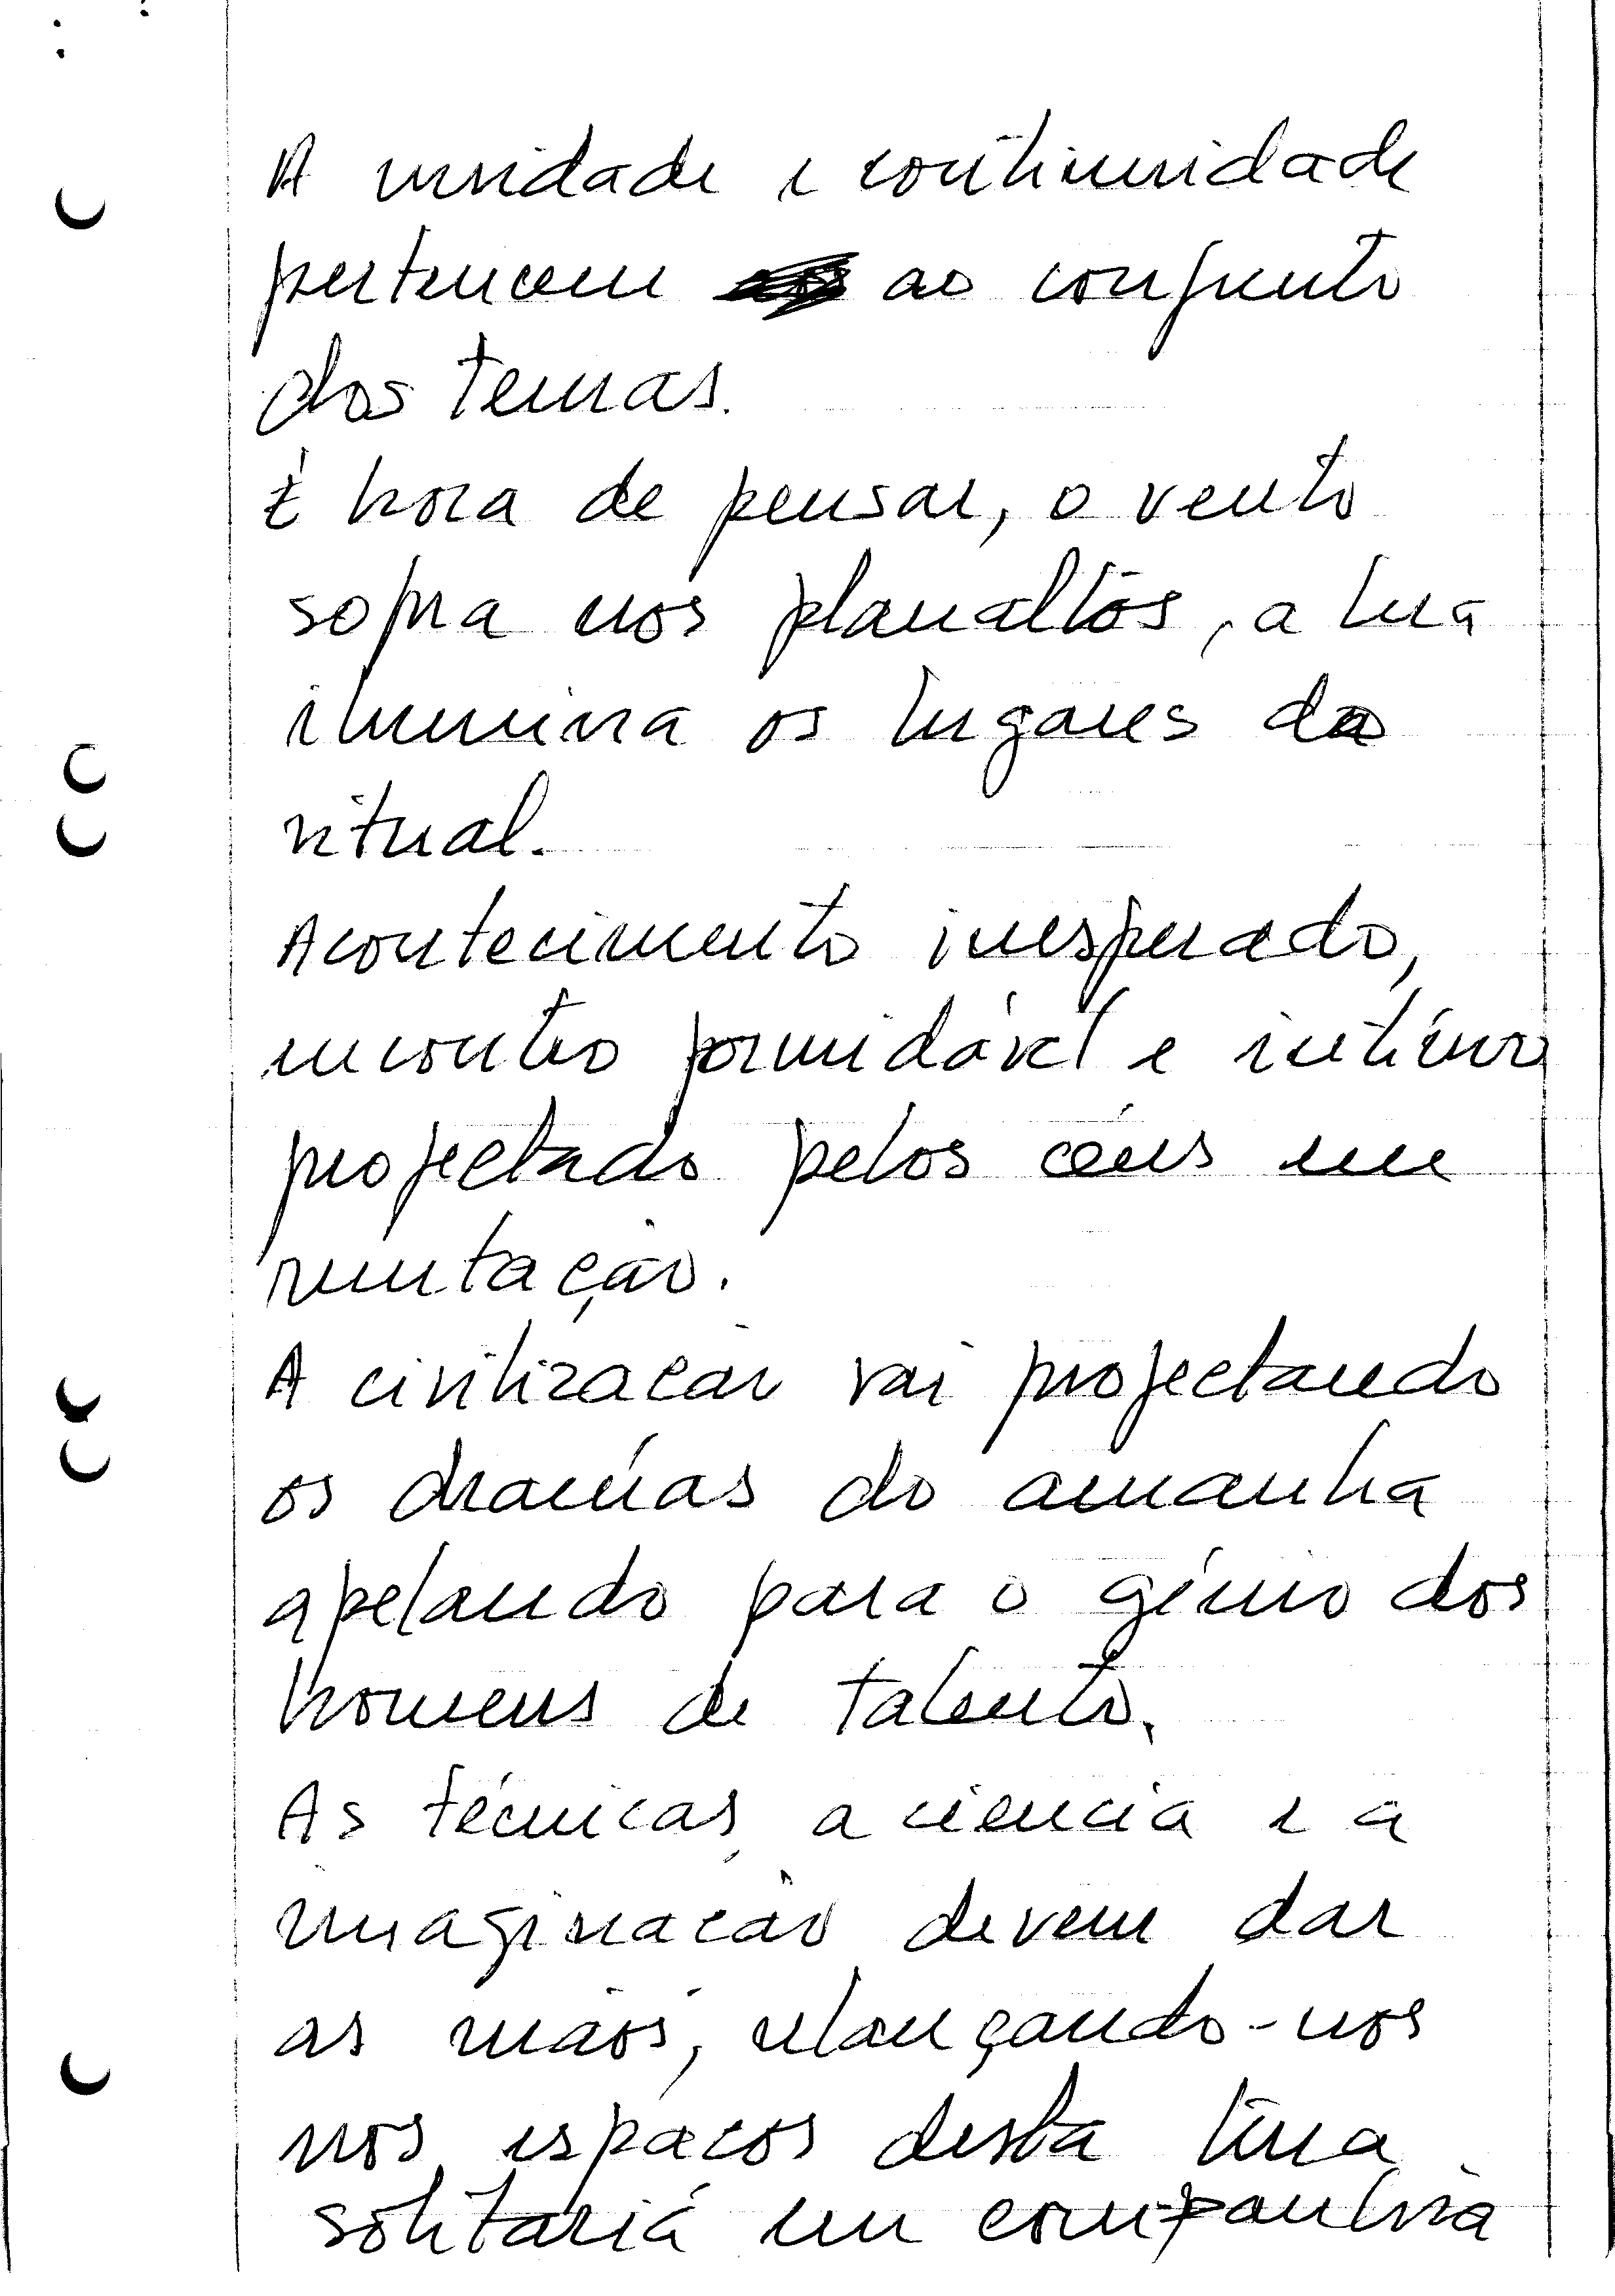 A unidade e continuidade
pertencem ao conjunto
dos temas.
É hora de pensar, o vento
sopra nos planaltos, a lua
ilumina os lugares do
ritual.
Acontecimento inesperado,
encontro formidável e íntimo
projectado pelos céus em
mutação.
A civilização vai projectando
os dramas do amanhã
apelando para o génio dos
homens de talento.
As técnicas, a ciencia e a
imaginação devem dar
as mãos, relançando-nos
nos espaços desta
solitária em companhia